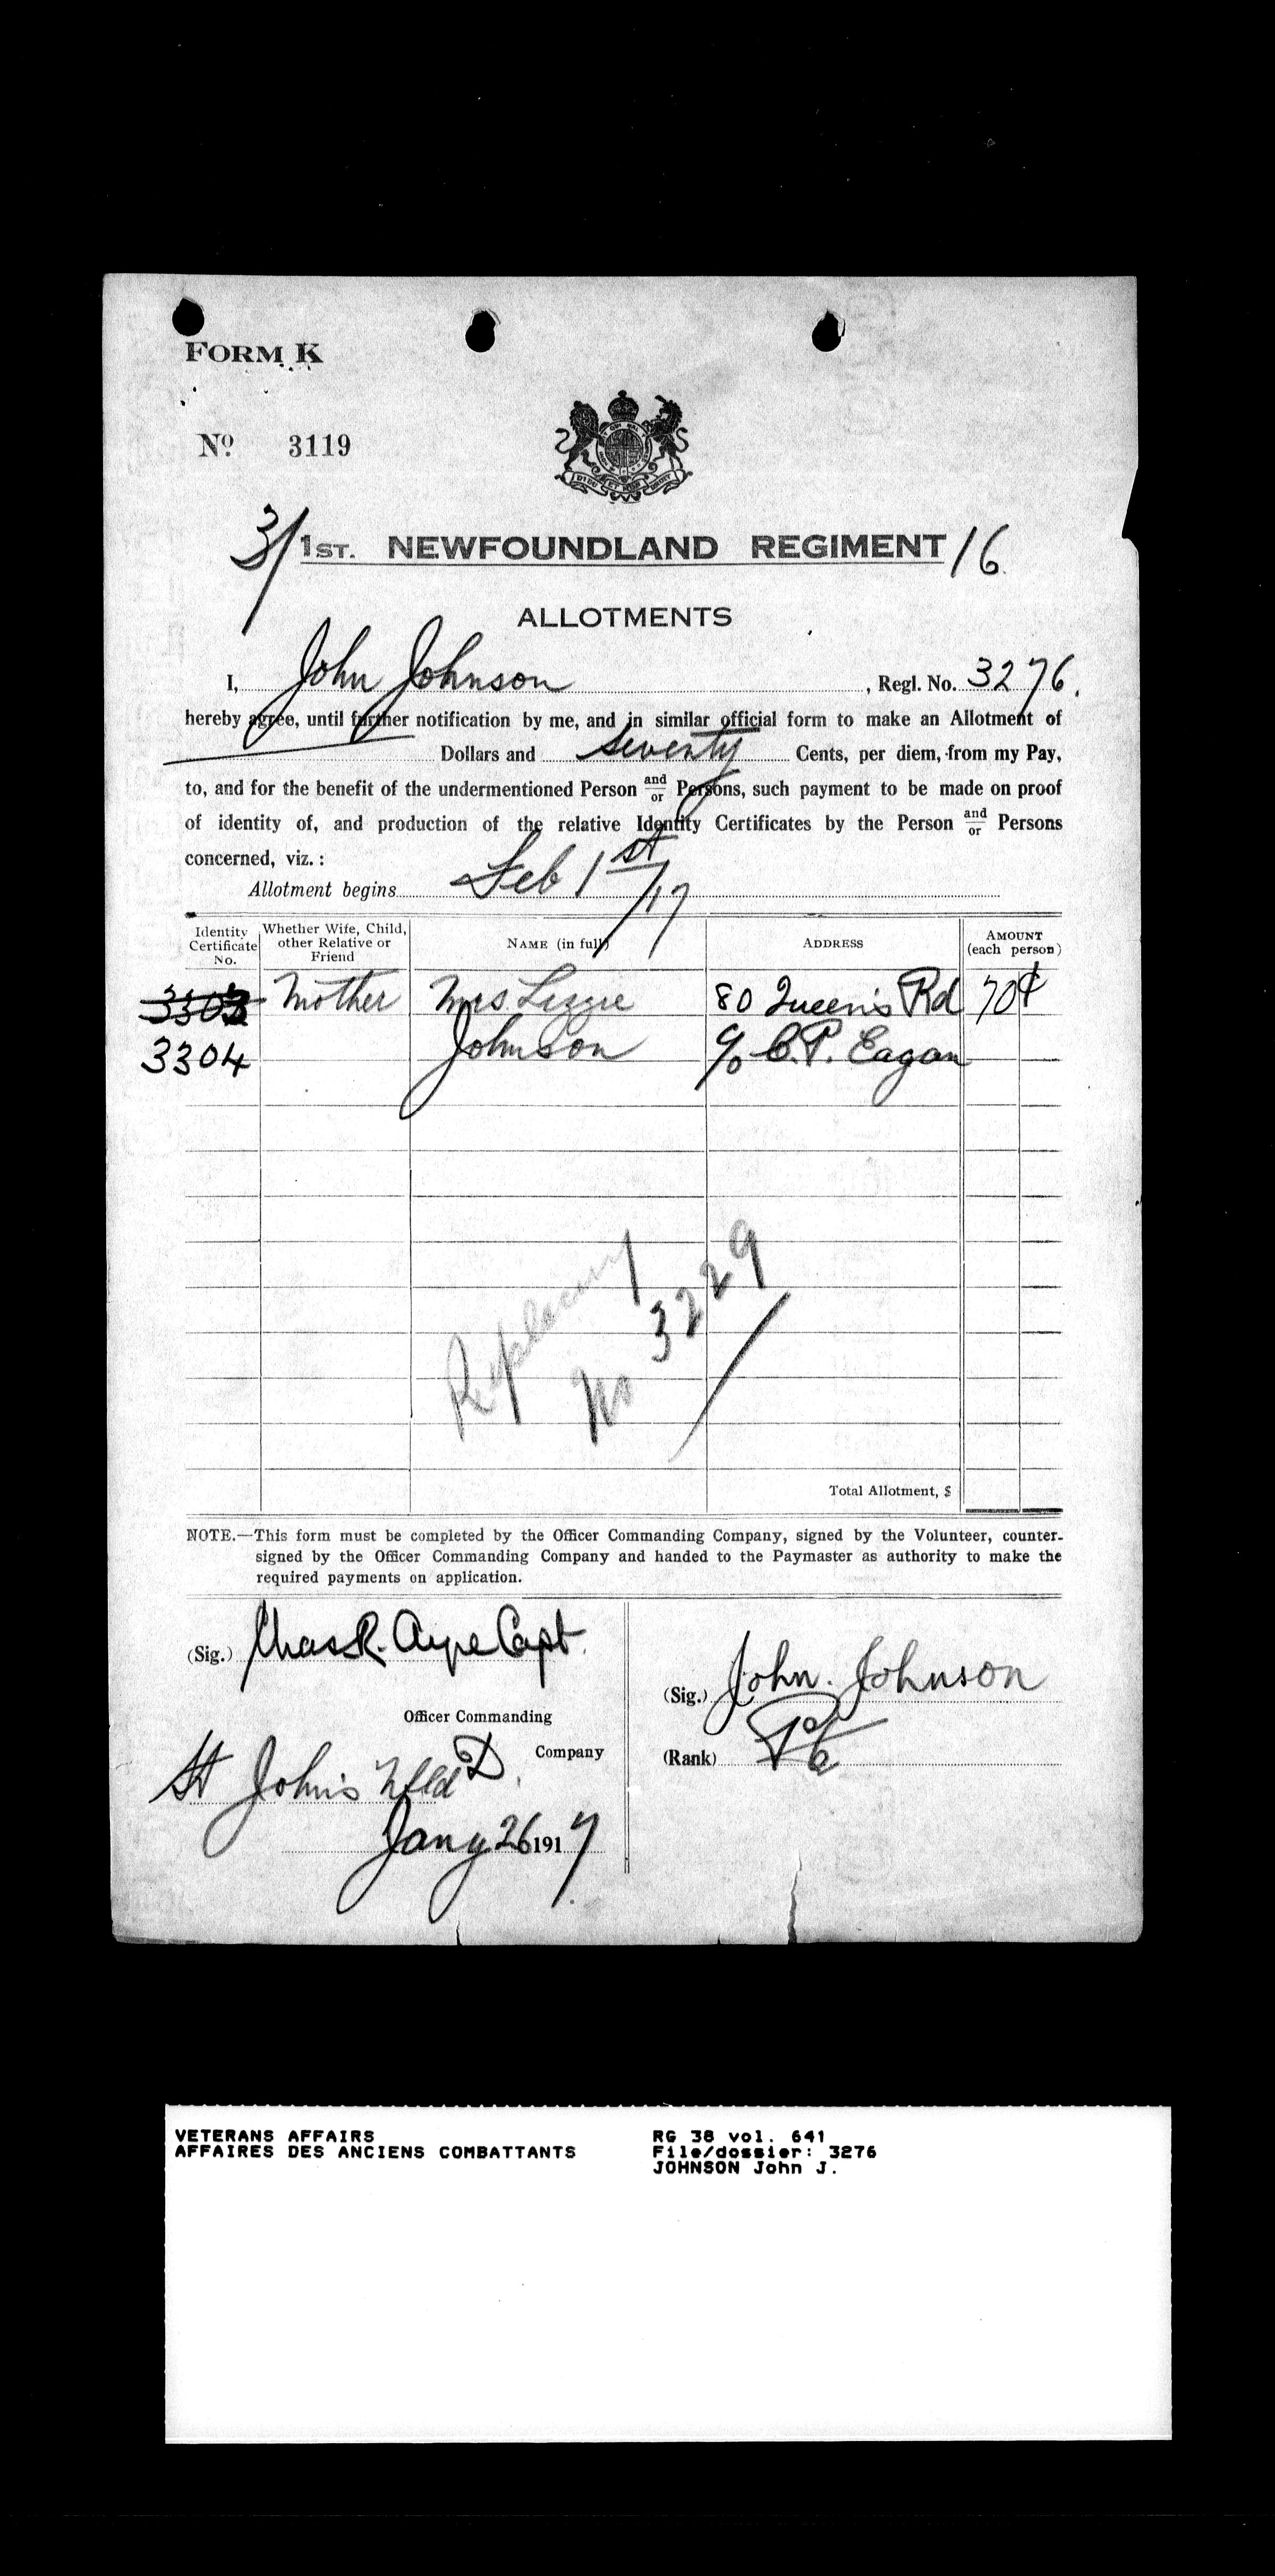 FORM K
No. 3119
3/ 1ST. NEWFOUNDLAND REGIMENT /16
ALLOTMENTS
I, John Johnson, Regl. No. 3276.
hereby agree, until further notification by me, and in similar official form to make an Allotment of
Dollars and seventy Cents, per diem, from my Pay,
to, and for the benefit of the undermentioned Person and/or Persons, such payment to be made on proof
of identity of, and production of the relative Identity Certificates by the Person and/or Persons
concerned, viz.:
Allotment begins Feb 1st/17
Identity Certificate No. Whether Wife, Child, other Relative or Friend NAME (in full) ADDRESS AMOUNT (each person)
3303 Mother Mrs. Lizzie 80 Queen's Rd 70¢
3304 Johnson c/o C.P. Eagan
Replacing
No 3229
Total Allotment, $
NOTE.—This form must be completed by the Officer Commanding Company, signed by the Volunteer, counter-
signed by the Officer Commanding Company and handed to the Paymaster as authority to make the
required payments on application.
(Sig.) Chas R. Ayre Capt.
Officer Commanding
D Company
St John's Nfld
Jany 26 1917
(Sig.) John Johnson
(Rank) Pte
VETERANS AFFAIRS
AFFAIRES DES ANCIENS COMBATTANTS
RG 38 vol. 641
File/dossier: 3276
JOHNSON John J.